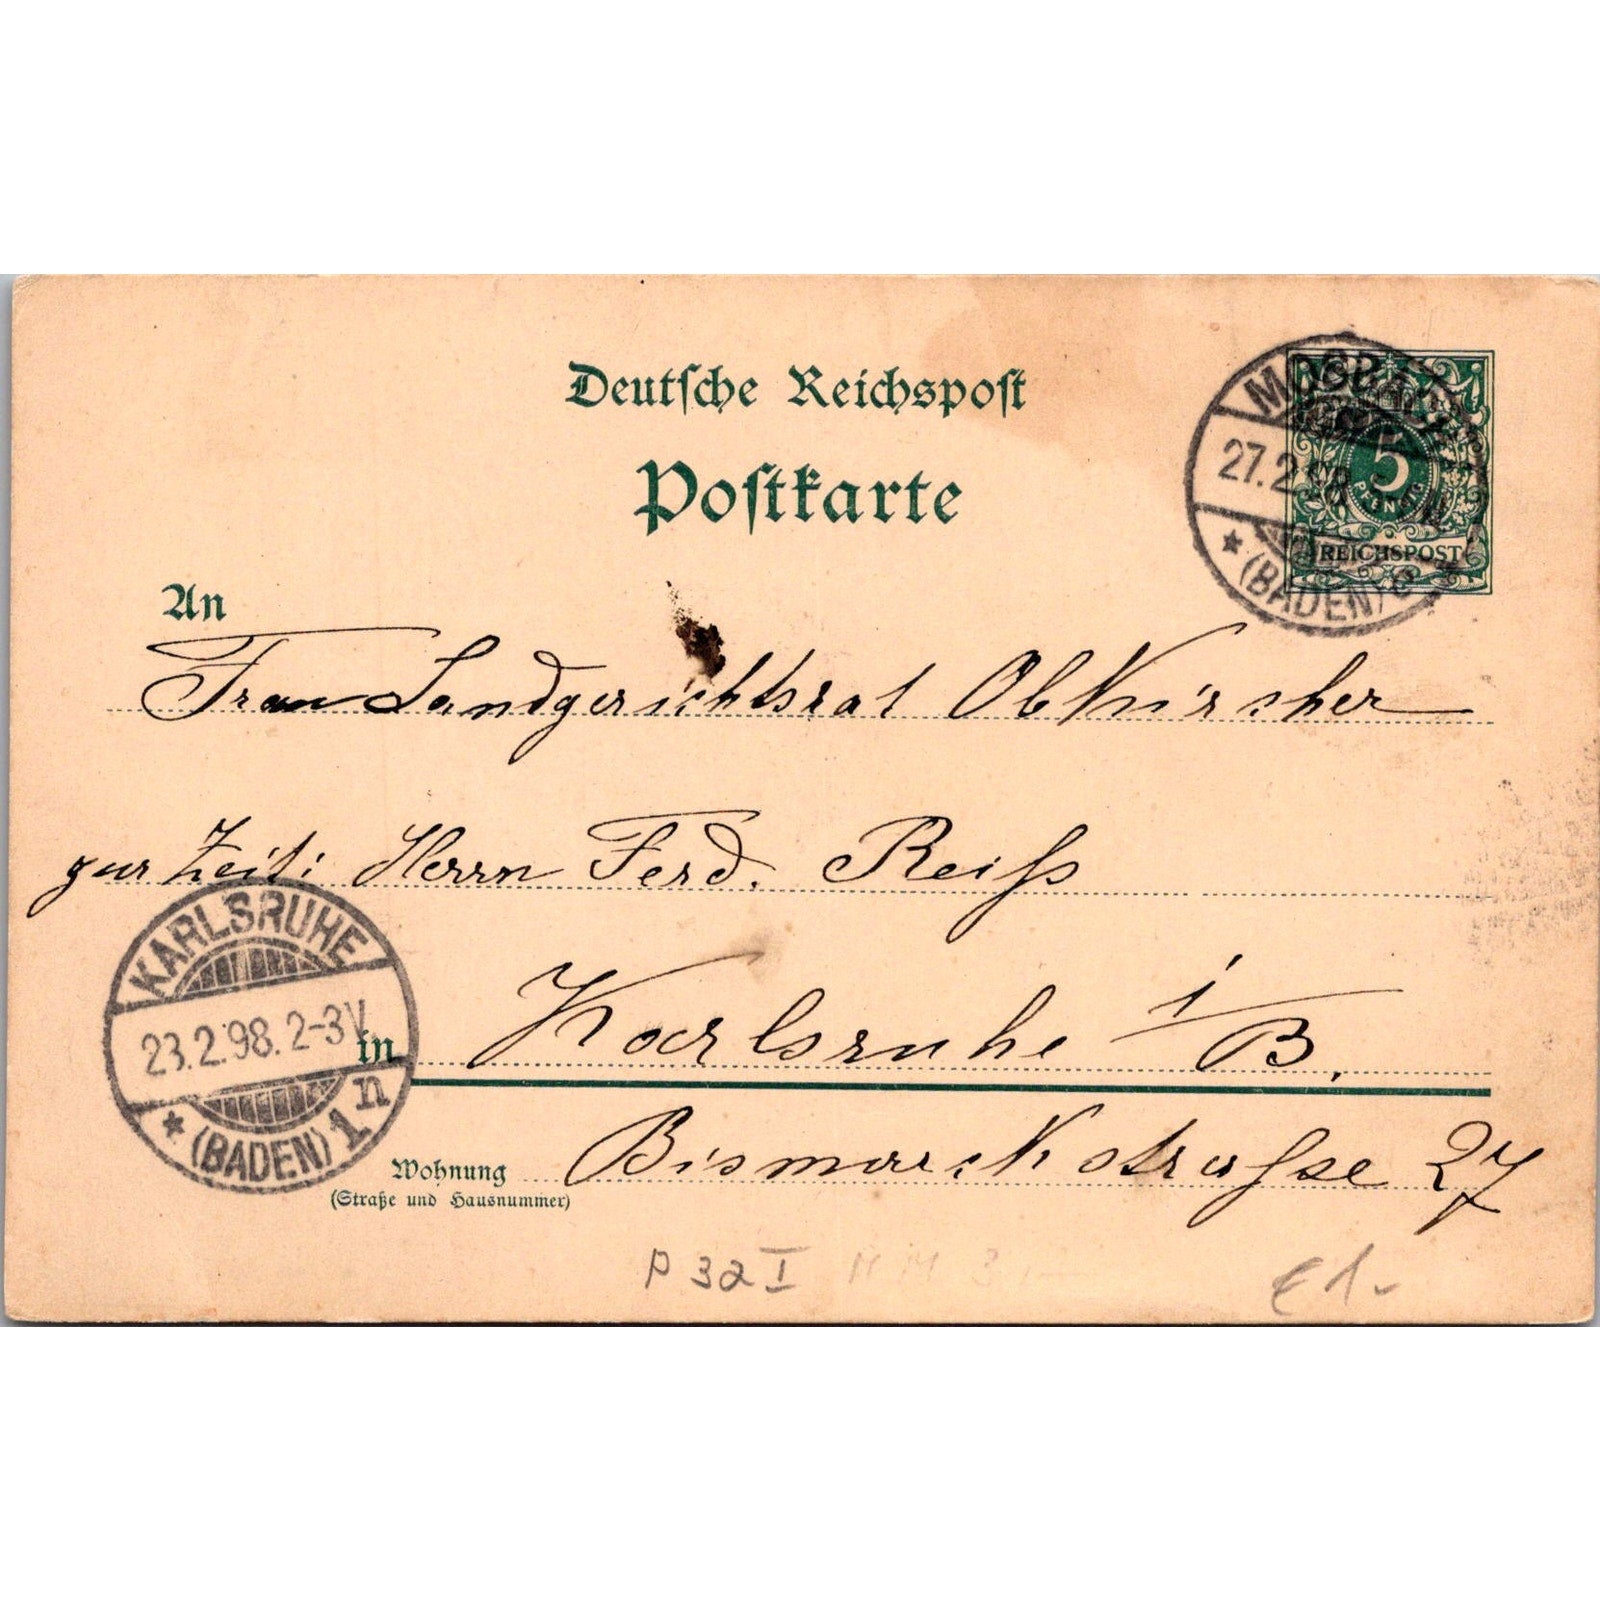 Deutsche Reichspost
Postkarte
MOSBACH
27.2
(BADEN)
5
PFENNIG
REICHSPOST
An
Frau Landgerichtsrat Obkircher
zur Zeit: Herrn Ferd. Reiß
in Karlsruhe i/B.
KARLSRUHE
23.2.98. 2-3V
(BADEN) 1n
Wohnung Bismarckstraße 27
(Straße und Hausnummer)
P 32 I
€1.-